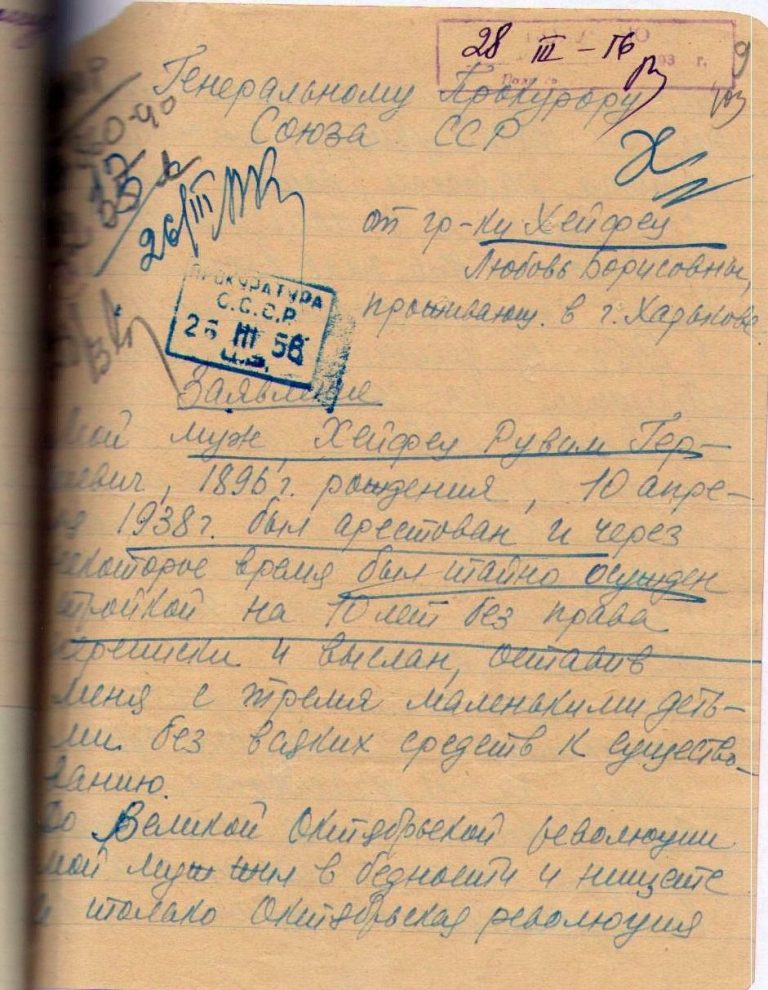 28 III - 56
93 г.
Генеральному Прокурору
Союза ССР
26/III
ПРОКУРАТУРА
С.С.С.Р.
26 III 56
от гр-ки Хейфец
Любовь Борисовны,
проживающ. в г. Харькове
Заявление
Мой муж, Хейфец Рувим Гер-
шевич, 1896 г. рождения, 10 апре-
ля 1938 г. был арестован и через
некоторое время был тайно осужден
тройкой на 10 лет без права
переписки и выслан, оставив
меня с тремя маленькими деть-
ми без всяких средств к существо-
ванию.
До Великой Октябрьской революции
мой муж жил в бедности и нищете
и только Октябрьская революция